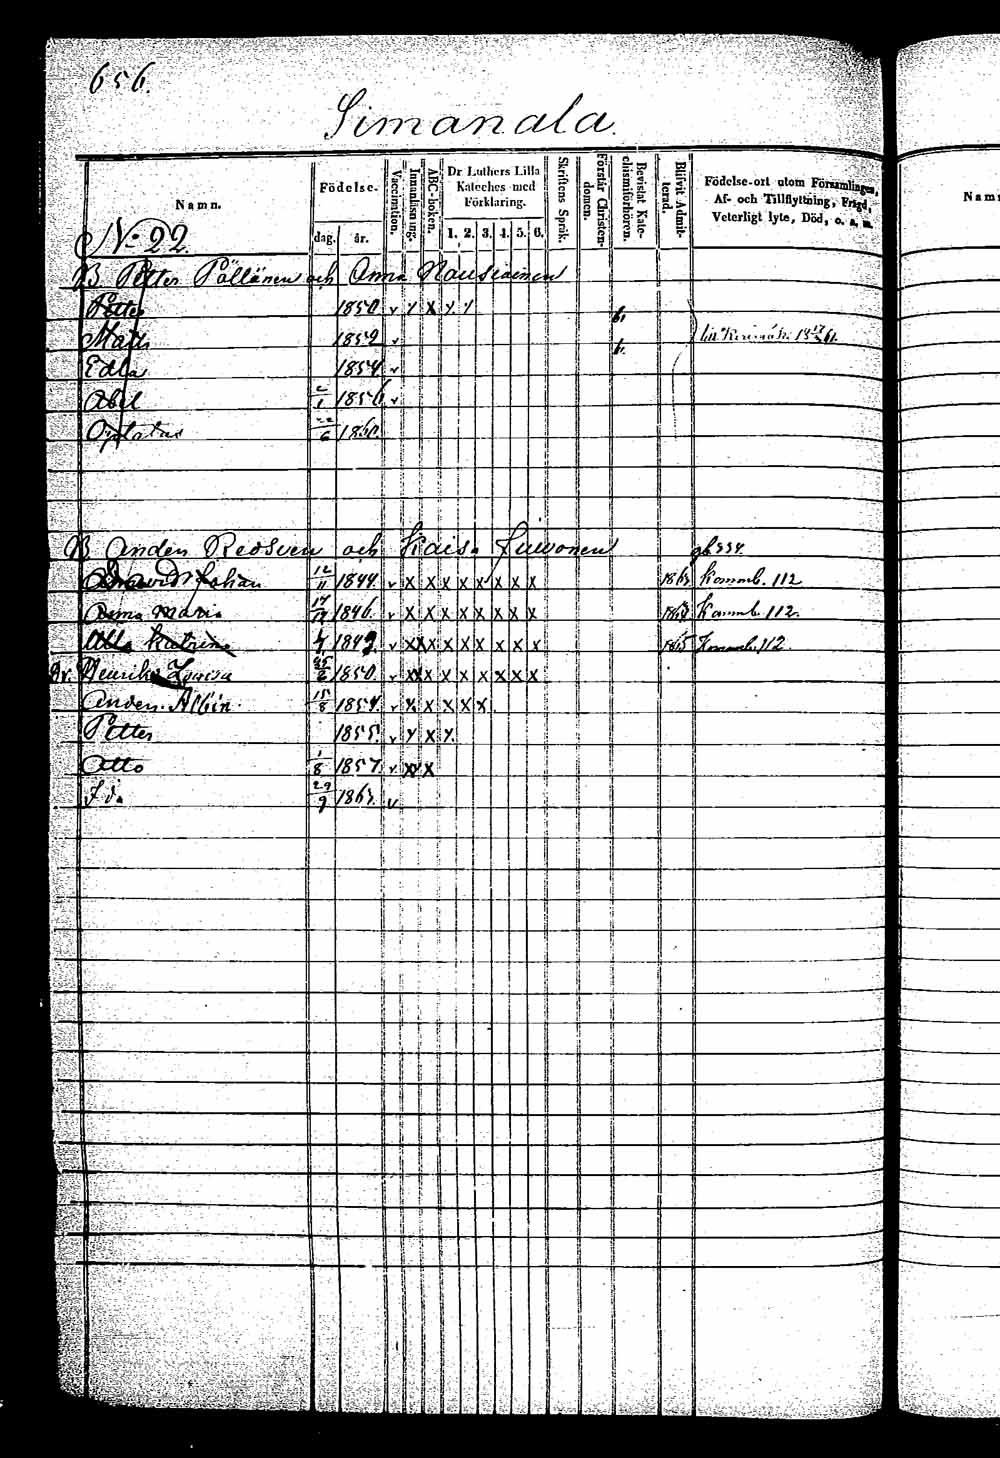 656.
Simanala.
Namn.
Födelse-
dag. år.
Vaccination.
Innanläsning.
ABC-boken.
Dr Luthers Lilla
Kateches med
Förklaring.
1. 2. 3. 4. 5. 6.
Skriftens Språk.
Förstår Christen-
domen.
Bevistat Kate-
chismiförhören.
Blifvit Admit-
terad.
Födelse-ort utom Församlingen,
Af- och Tillflyttning, Frägd,
Veterligt lyte, Död, o. s. m.
Nam
No 22.
B Petter Pöllänen och Anna Nousiainen
Petter 1850 v
Matts 1852 v
Edla 1854 v
Abel 2/1 1856 v
22/6 1860
B Anders och Kaisa
Johan 12/11 1844 v X X X X X X X X Kommb. 112
Anna Maria 1846 v X X X X X X X X Kommb. 112.
Katrina v X X X X X X X X 1865 Kommb. 112
Henrika Lovisa 25/6 1850 v X X X X X X X X
Anders Albin 15/8 1854 v X X X X X
Petter 1855 v X X X
Otto 1/8 1857 v X X
Ida 29/9 1863 v